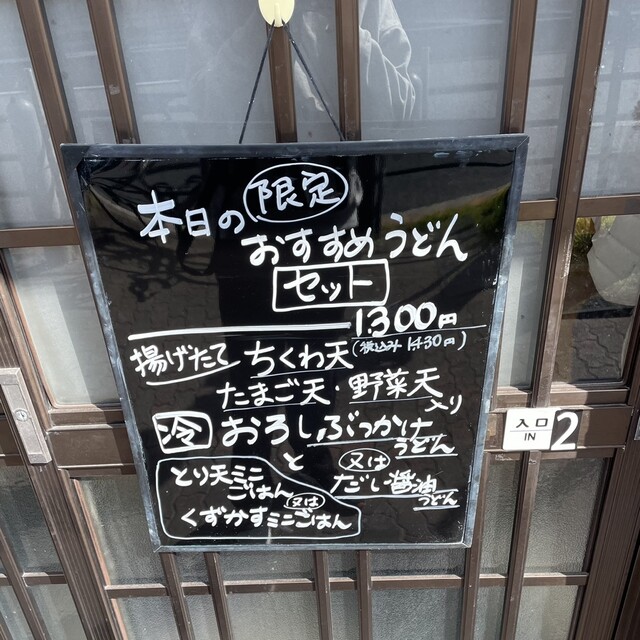 本日の限定
おすすめうどん
セット
1300円
(税込み1430円)
揚げたて ちくわ天
たまご天・野菜天
入り
冷 おろしぶっかけ
うどん
と
又は
だし醤油
うどん
とり天ミニ
ごはん
又は
くずかすミニごはん
入口
IN
2